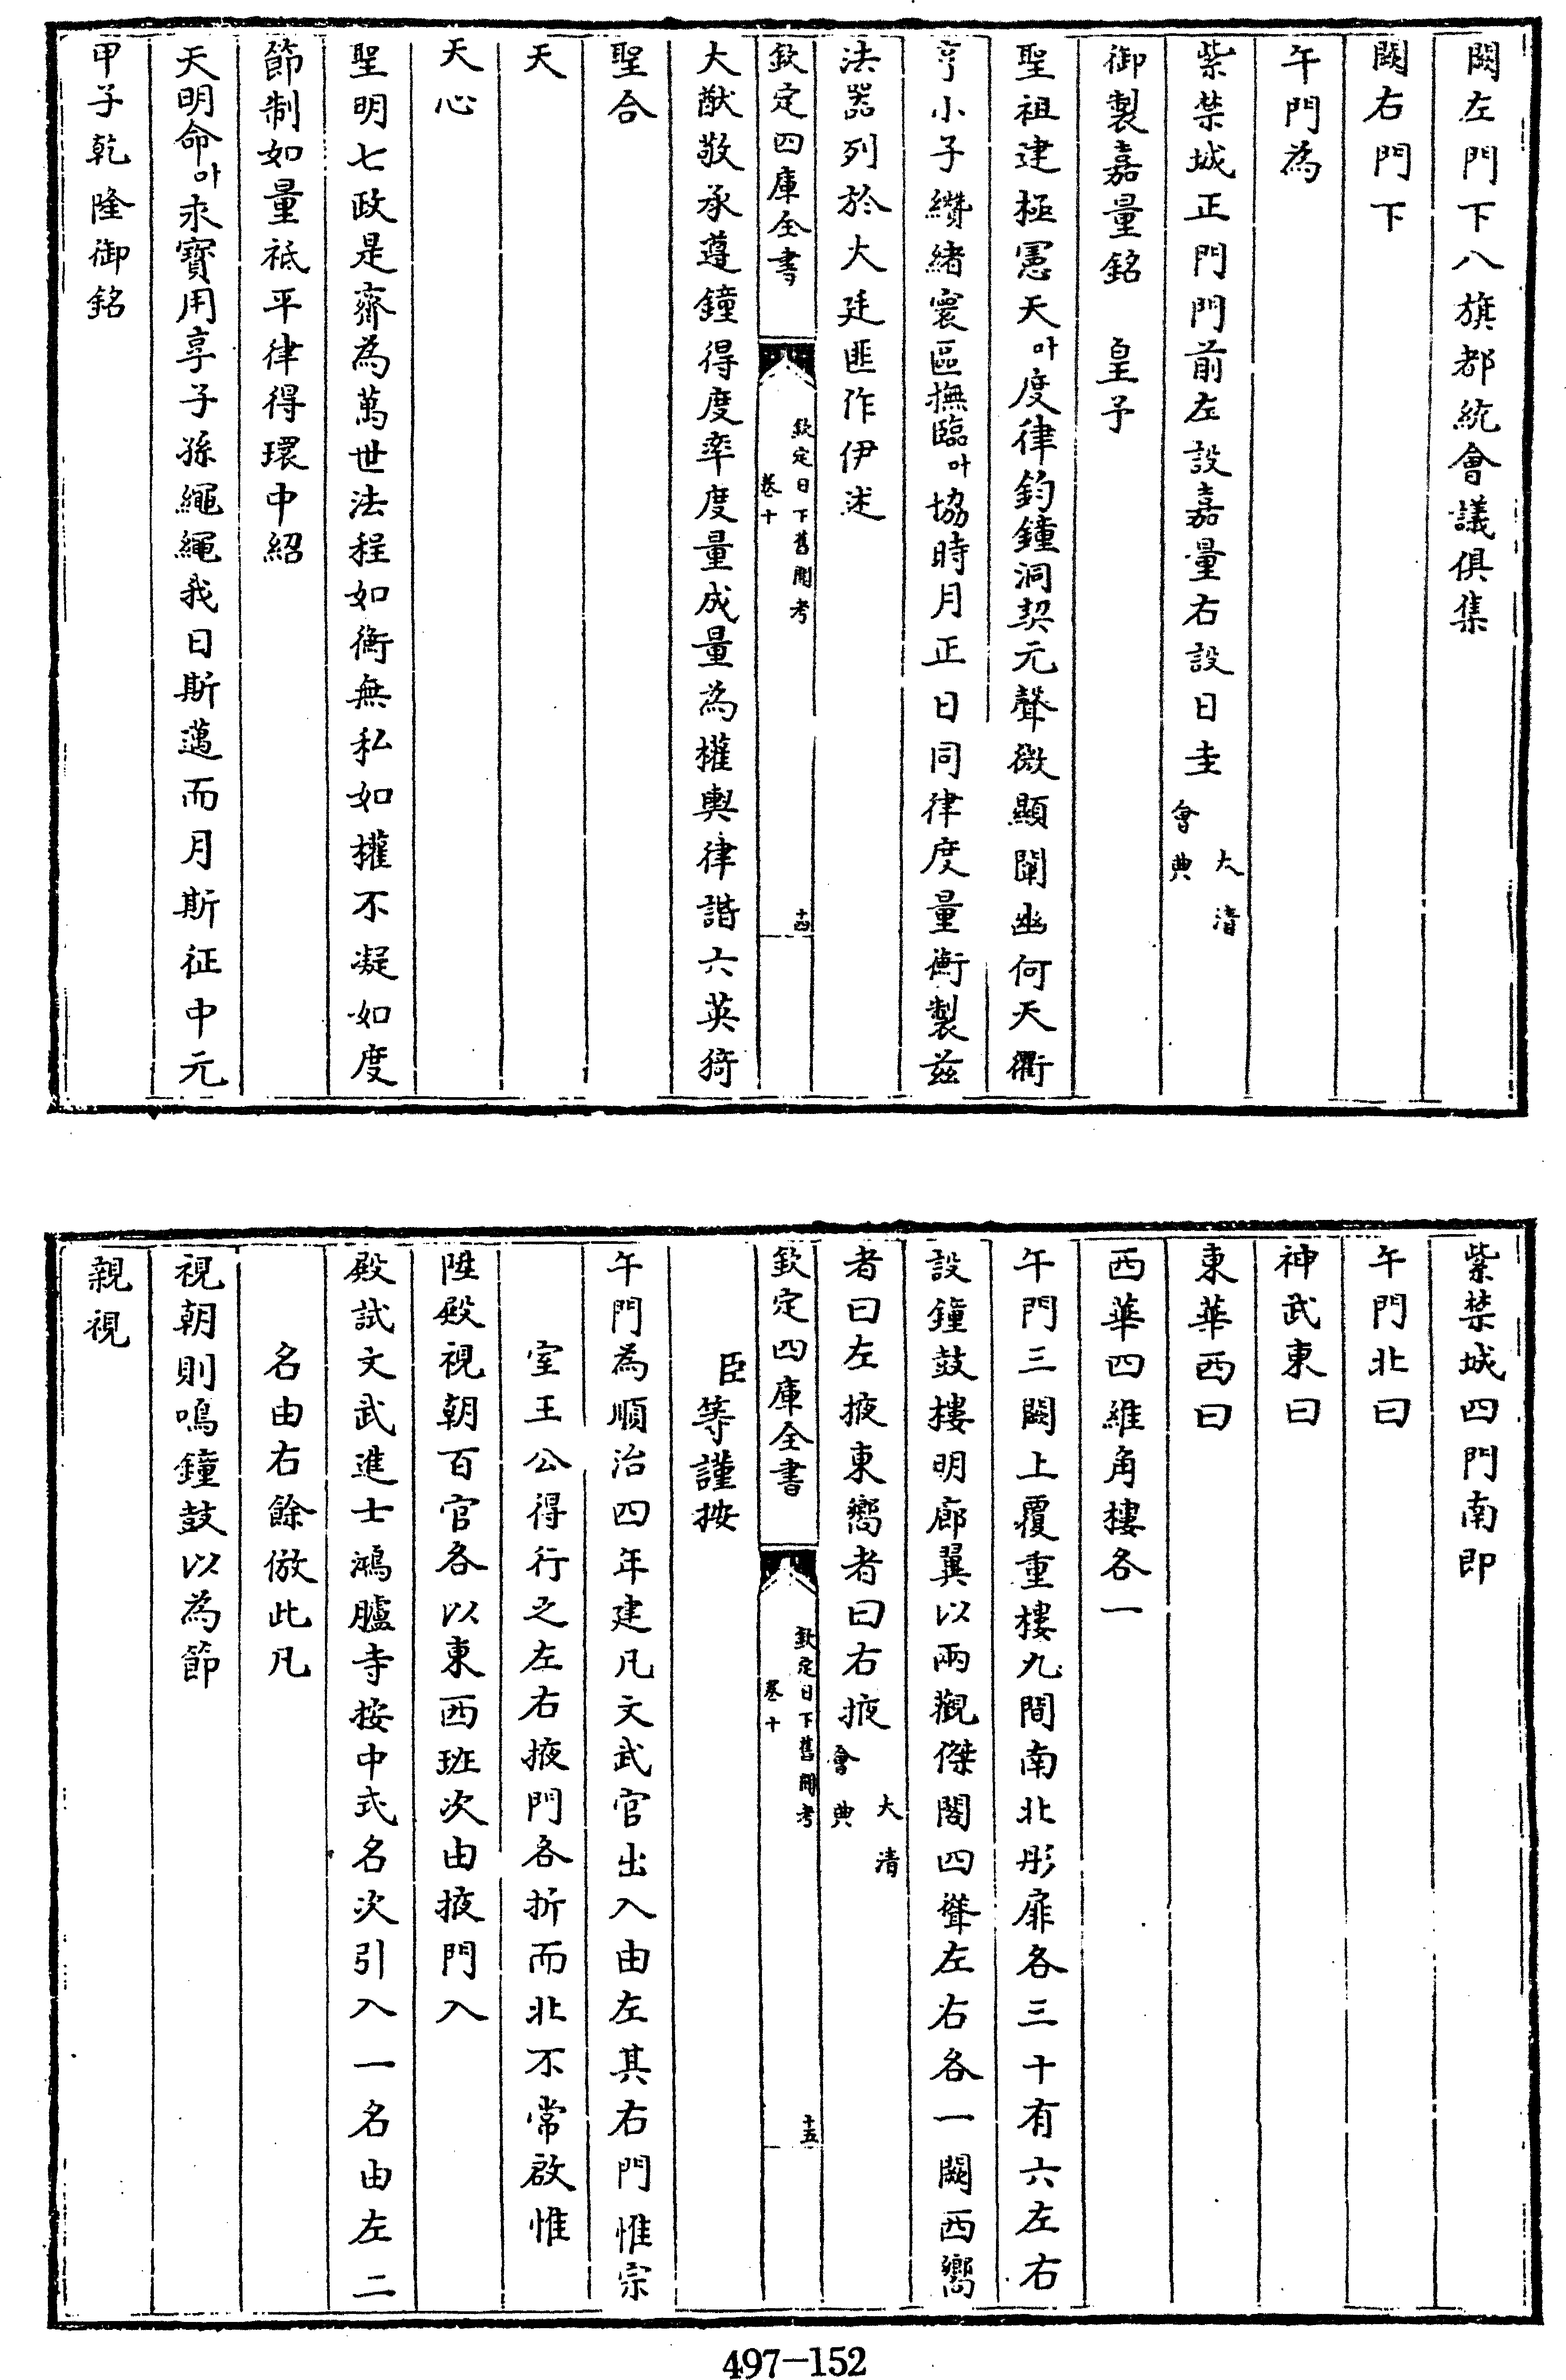 闕左門下八旗都統會議俱集
闕右門下
午門為
紫禁城正門門前左設嘉量右設日圭大清會典
御製嘉量銘　皇予
聖祖建極憲天叶度律鈞鐘洞契元聲微顯闡幽何天衢
亨小子纘緒寰區撫臨叶協時月正日同律度量衡製茲
法器列於大廷匪作伊述
欽定四庫全書
欽定日下舊聞考
卷十
十四
大猷敬承遵鐘得度率度量成量為權輿律諧六英猗
聖合
天
天心
聖明七政是齊為萬世法程如衡無私如權不凝如度
節制如量祇平律得環中紹
天明命叶永寶用享子孫繩繩我日斯邁而月斯征中元
甲子乾隆御銘
紫禁城四門南即
午門北曰
神武東曰
東華西曰
西華四維角樓各一
午門三闕上覆重樓九間南北彤扉各三十有六左右
設鐘鼓樓明廊翼以兩觀傑閣四聳左右各一闕西嚮
者曰左掖東嚮者曰右掖大清會典
欽定四庫全書
欽定日下舊聞考
卷十
十五
臣等謹按
午門為順治四年建凡文武官出入由左其右門惟宗
室王公得行之左右掖門各折而北不常啟惟
陞殿視朝百官各以東西班次由掖門入
殿試文武進士鴻臚寺按中式名次引入一名由左二
名由右餘倣此凡
視朝則鳴鐘鼓以為節
親視
497-152